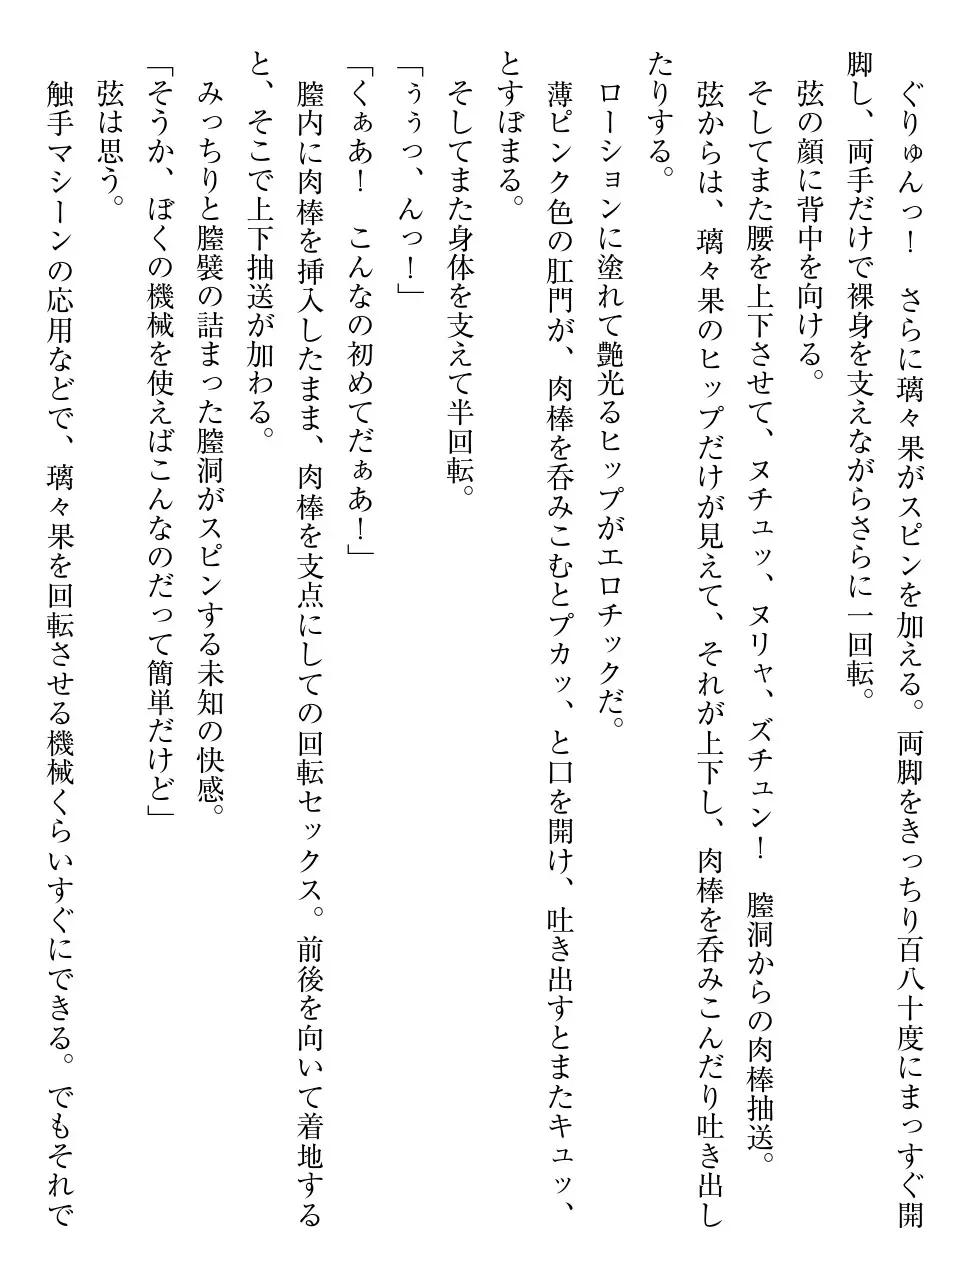 ぐりゅんっ！　さらに璃々果がスピンを加える。両脚をきっちり百八十度にまっすぐ開
脚し、両手だけで裸身を支えながらさらに一回転。
　弦の顔に背中を向ける。
　そしてまた腰を上下させて、ヌチュッ、ヌリャ、ズチュン！　膣洞からの肉棒抽送。
　弦からは、璃々果のヒップだけが見えて、それが上下し、肉棒を呑みこんだり吐き出し
たりする。
　ローションに塗れて艶光るヒップがエロチックだ。
　薄ピンク色の肛門が、肉棒を呑みこむとプカッ、と口を開け、吐き出すとまたキュッ、
とすぼまる。
　そしてまた身体を支えて半回転。
「ぅぅっ、んっ！」
「くぁあ！　こんなの初めてだぁあ！」
　膣内に肉棒を挿入したまま、肉棒を支点にしての回転セックス。前後を向いて着地する
と、そこで上下抽送が加わる。
　みっちりと膣襞の詰まった膣洞がスピンする未知の快感。
「そうか、ぼくの機械を使えばこんなのだって簡単だけど」
　弦は思う。
　触手マシーンの応用などで、璃々果を回転させる機械くらいすぐにできる。でもそれで